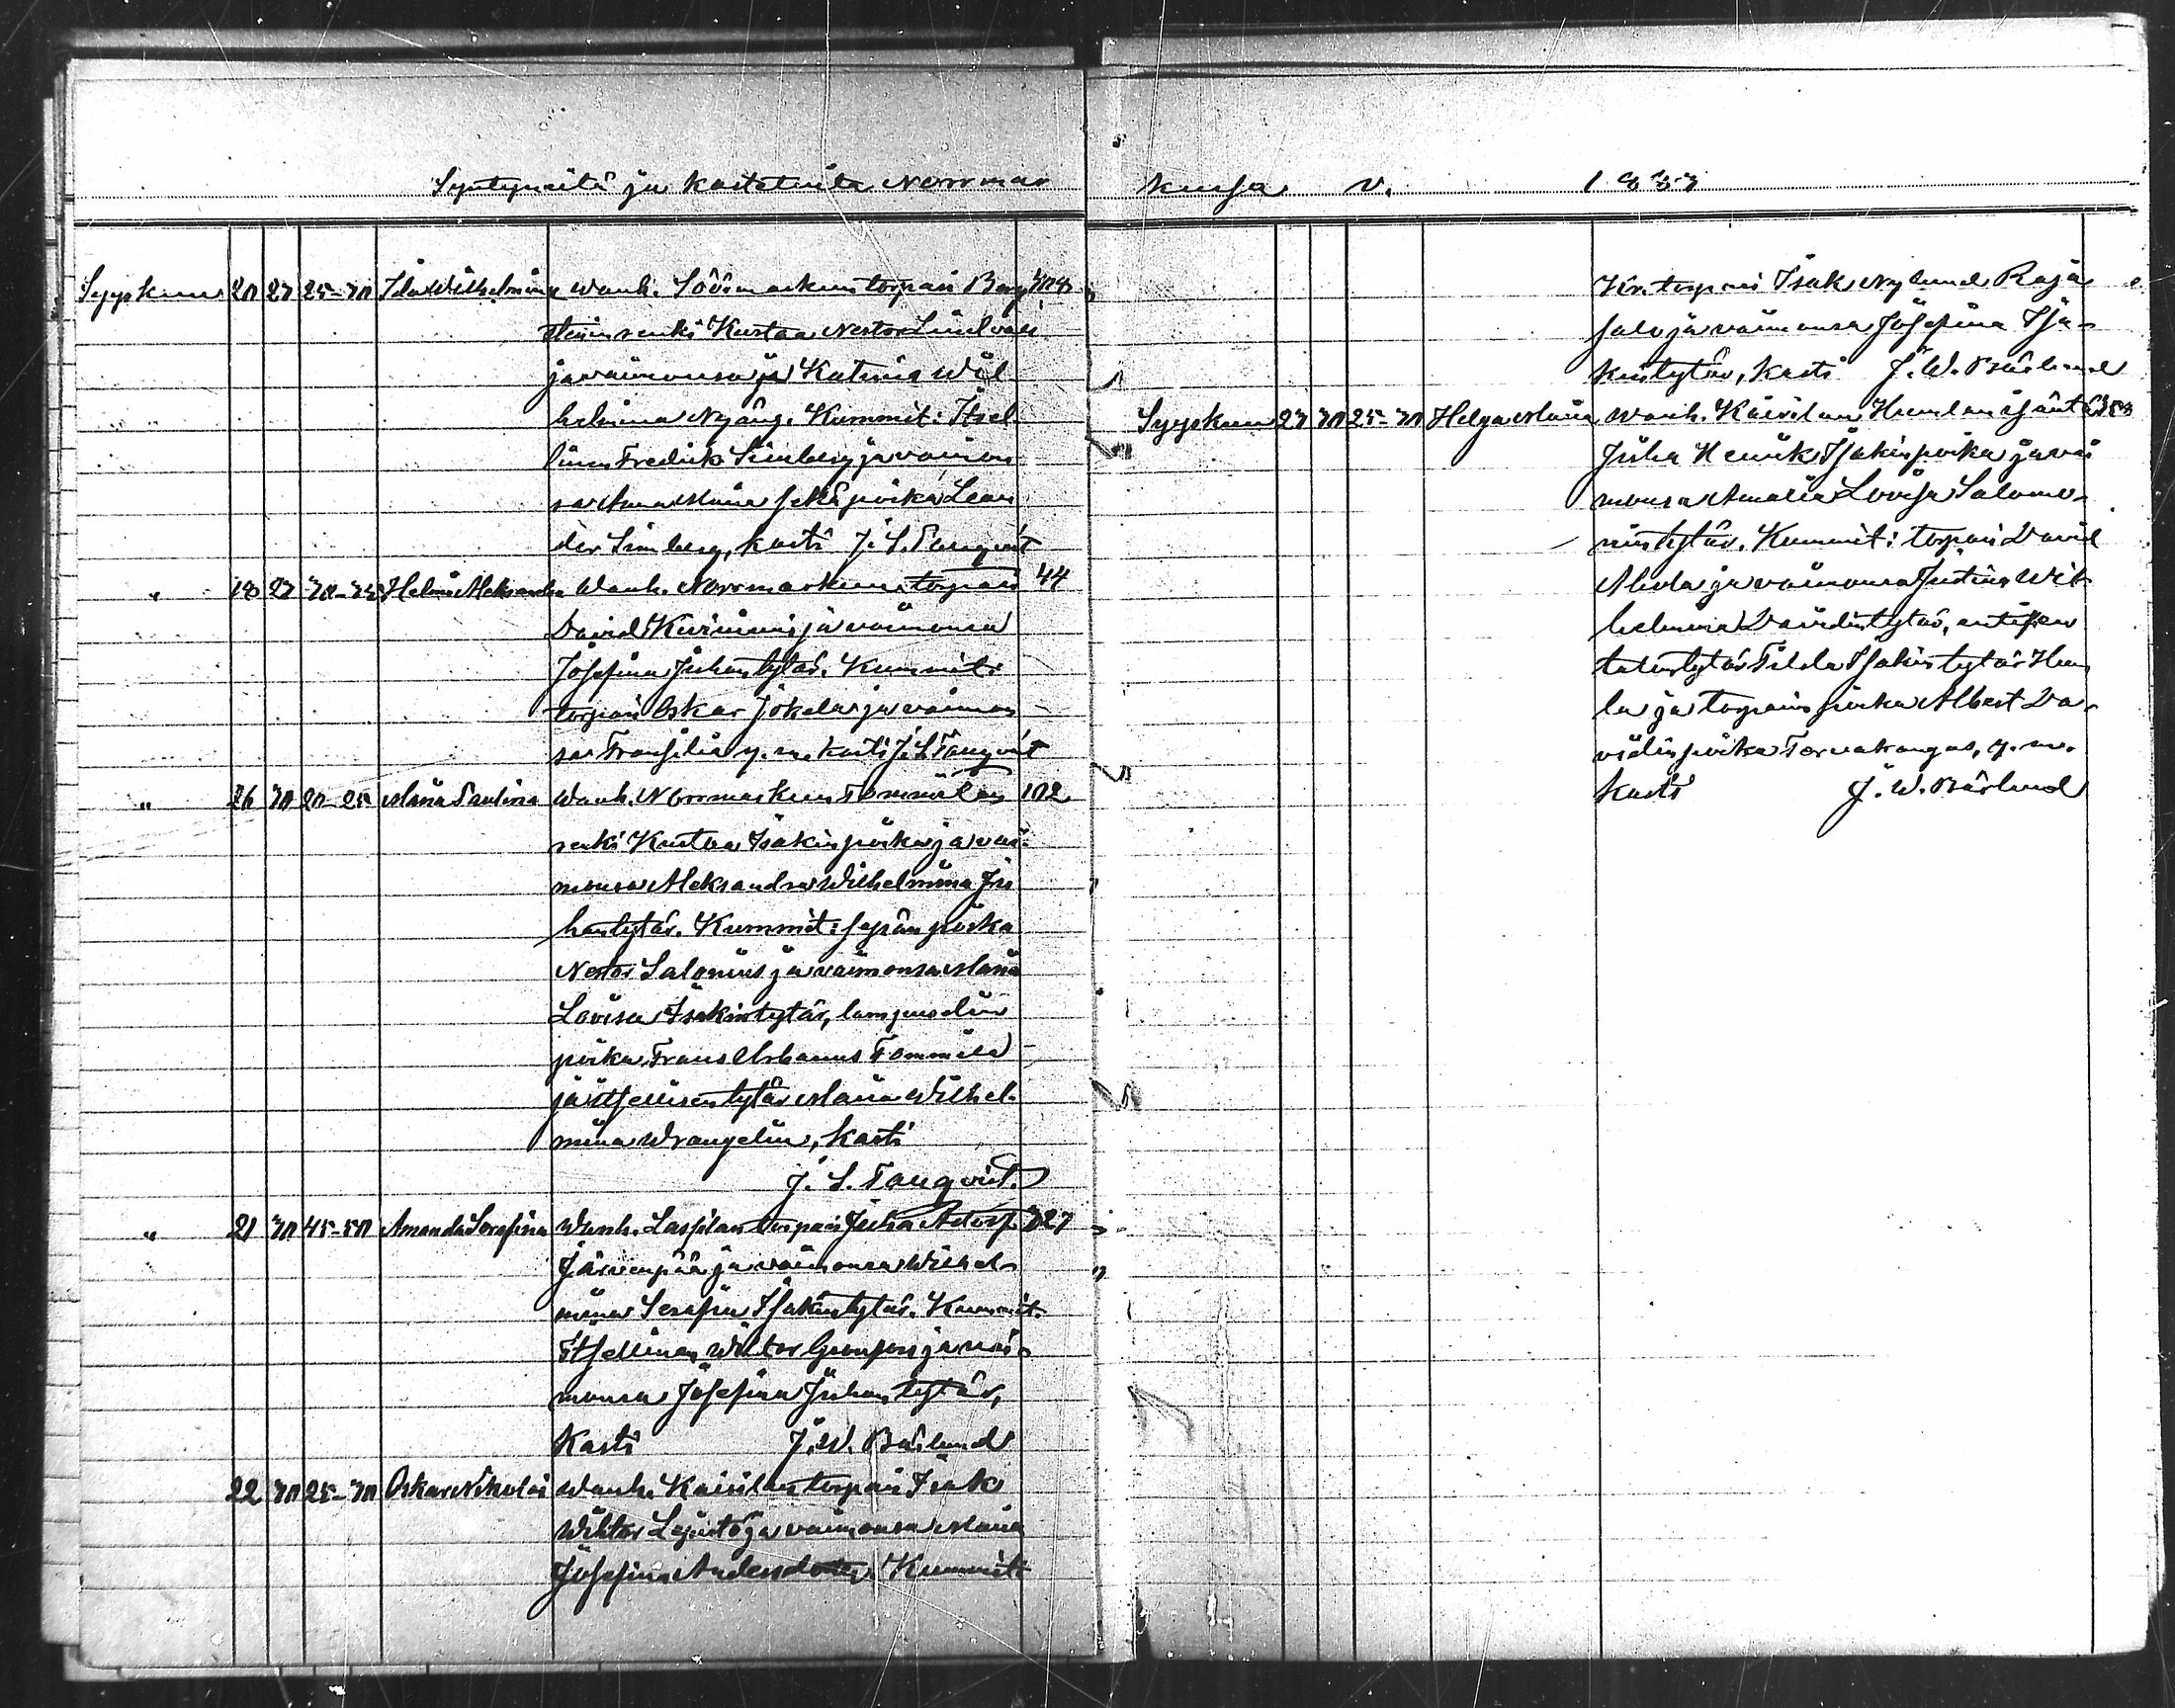 Syntyneitä ja kastetuita Norrmar
kussa v. 1887
Syyskuu 20 27 25-30 Ida Wilhelmina Wanh. Södsmarkun torpari Berg
renki Kustaa Nestor Lindvall
ja vaimonsa Katrina Wil
helmina Nyäng. Kummit: Itsel
linen Fredrik Simberg ja vaimon
sa Anna Maria sekä poika Lean
der Simberg, kasti J. S. Tanqvist
" 18 27 30-35 Helmi Aleksandra Wanh. Norrmarkun torpari 44
David Kivimäki ja vaimonsa
Josefina Juhantytär. Kummit:
torpari Oskar Jokela ja vaimon
sa Fransilia y. m. kasti J. S. Tanqvist
" 26 30 20-25 Maria Paulina Wanh. Norrmarkun Tommilan 102
renki Kustaa Isakinpoika ja vai-
monsa Aleksandra Wilhelmina Ju
hantytär. Kummit: sepän poika
Nestor Salonius ja vaimonsa Maria
Lovisa Isakintytär, lampuodin
poika Frans Urbanus Tommila
ja itsellisentytär Maria Wilhel-
mina Wrangelin, kasti
J. S. Tanqvist.
" 21 30 45-50 Amanda Serafina Wanh. Lassilan torpari Juha Adolf 327
Järvenpää ja vaimonsa Wilhel-
mina Serafia Isakintytär. Kummit.
Itsellinen Wiktor Gronfors ja vai-
monsa Josefina Juhantytär,
Kasti J. W. Bärlund
22 30 25-30 Oskar Nikolai Wanh. Kairilan torpari Isak
Wiktor Lepistö ja vaimonsa Maria
Josefina Andersdotter. Kummit:
torpari Isak Nylund Raja
salo ja vaimonsa Josefina Isa-
kintytär, kasti J. W. Bärlund
Syyskuu 27 30 25-30 Helga Maria Wanh. Kairilan Humlan isäntä
Juha Henrik Isakinpoika ja vai
monsa Amalia Lovisa Salomo-
nintytär. Kummit: torpari David
Ahola ja vaimonsa Justina Wil
helmina Davidintytär, entisen
talontytär Tilda Isakintytär Hum
la ja torparin poika Albert Da-
vidinpoika Tervakangas, y. m.
Kasti J. W. Bärlund